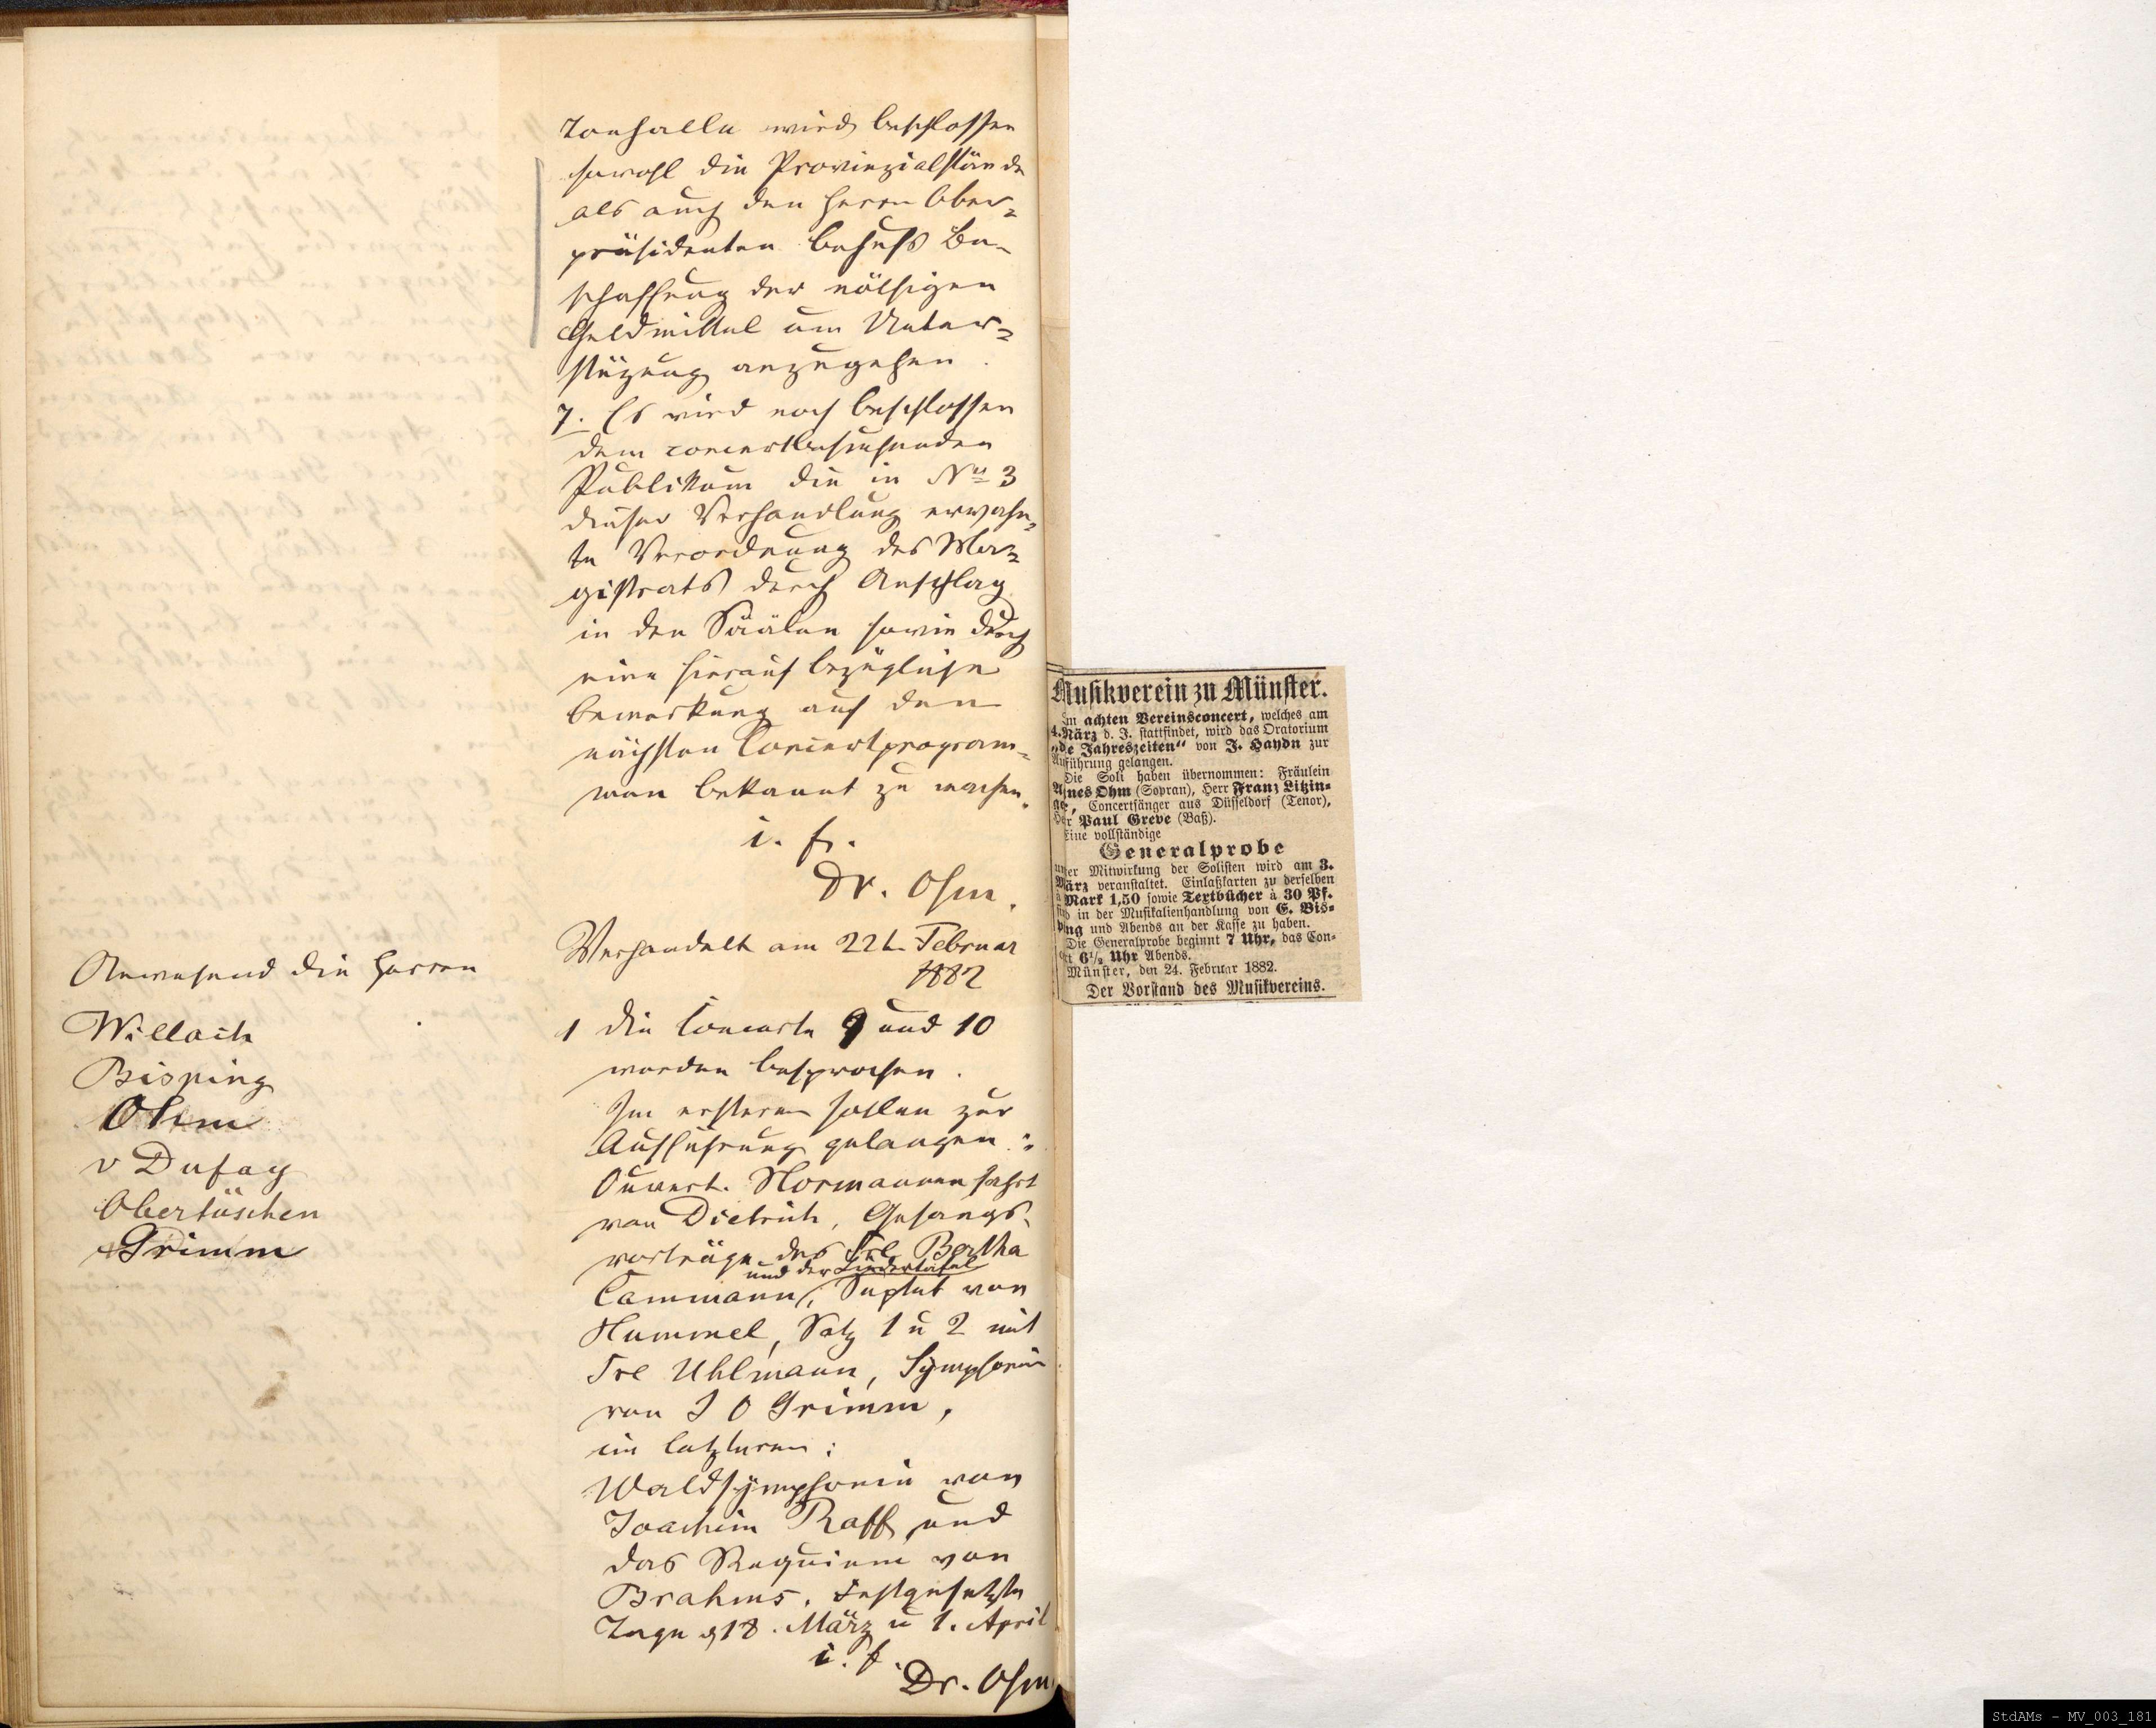 Tonhalle wird beschlossen
sowohl die Provinzialstände
als auch den Herrn Ober-
präsidenten behufs Be-
schaffung der nöthigen
Geldmittel um Unter-
stüzung anzugehen.
7. Es wird noch beschlossen
dem concertbesuchenden
Publikum die in No 3
dieser Verhandlung erwähn-
te Verordnung des Ma-
gistrats durch Anschlag
in den Säälen sowie durch
eine hierauf bezügliche
Bemerkung auf den
nächsten Concertprogram-
men bekannt zu machen.
i. f.
Dr. Ohm.
Verhandelt am 22t. Februar
1882
Anwesend die Herren
Willach
Bisping
Ohm
v Dufay
Obertüschen
Grimm
1 Die Concerte 9 und 10
werden besprochen.
Im ersteren sollen zur
Aufführung gelangen:
Ouvert. Normannenfahrt
von Dietrich, Gesangs-
vorträge des Frl. Bertha
und der Liedertafel
Cammann, Septet von
Hummel, Satz 1 u 2 mit
Frl Uhlmann, Symphonie
von J O Grimm,
im letzteren:
Waldsymphonie von
Joachim Raff und
das Requiem von
Brahms. Festgesetzte
Tage 18. März u 1. April
i. f.
Dr. Ohm
Musikverein zu Münster.
Im achten Vereinsconcert, welches am
4. März d. J. stattfindet, wird das Oratorium
„die Jahreszeiten“ von J. Haydn zur
Aufführung gelangen.
Die Soli haben übernommen: Fräulein
Agnes Ohm (Sopran), Herr Franz Litzin-
ger, Concertsänger aus Düsseldorf (Tenor),
Herr Paul Greve (Baß).
Eine vollständige
Generalprobe
unter Mitwirkung der Solisten wird am 3.
März veranstaltet. Einlaßkarten zu derselben
à Mark 1,50 sowie Textbücher à 30 Pf.
sind in der Musikalienhandlung von E. Bis-
ping und Abends an der Kasse zu haben.
Die Generalprobe beginnt 7 Uhr, das Con-
cert 6½ Uhr Abends.
Münster, den 24. Februar 1882.
Der Vorstand des Musikvereins.
StdAMs - MV_003_181